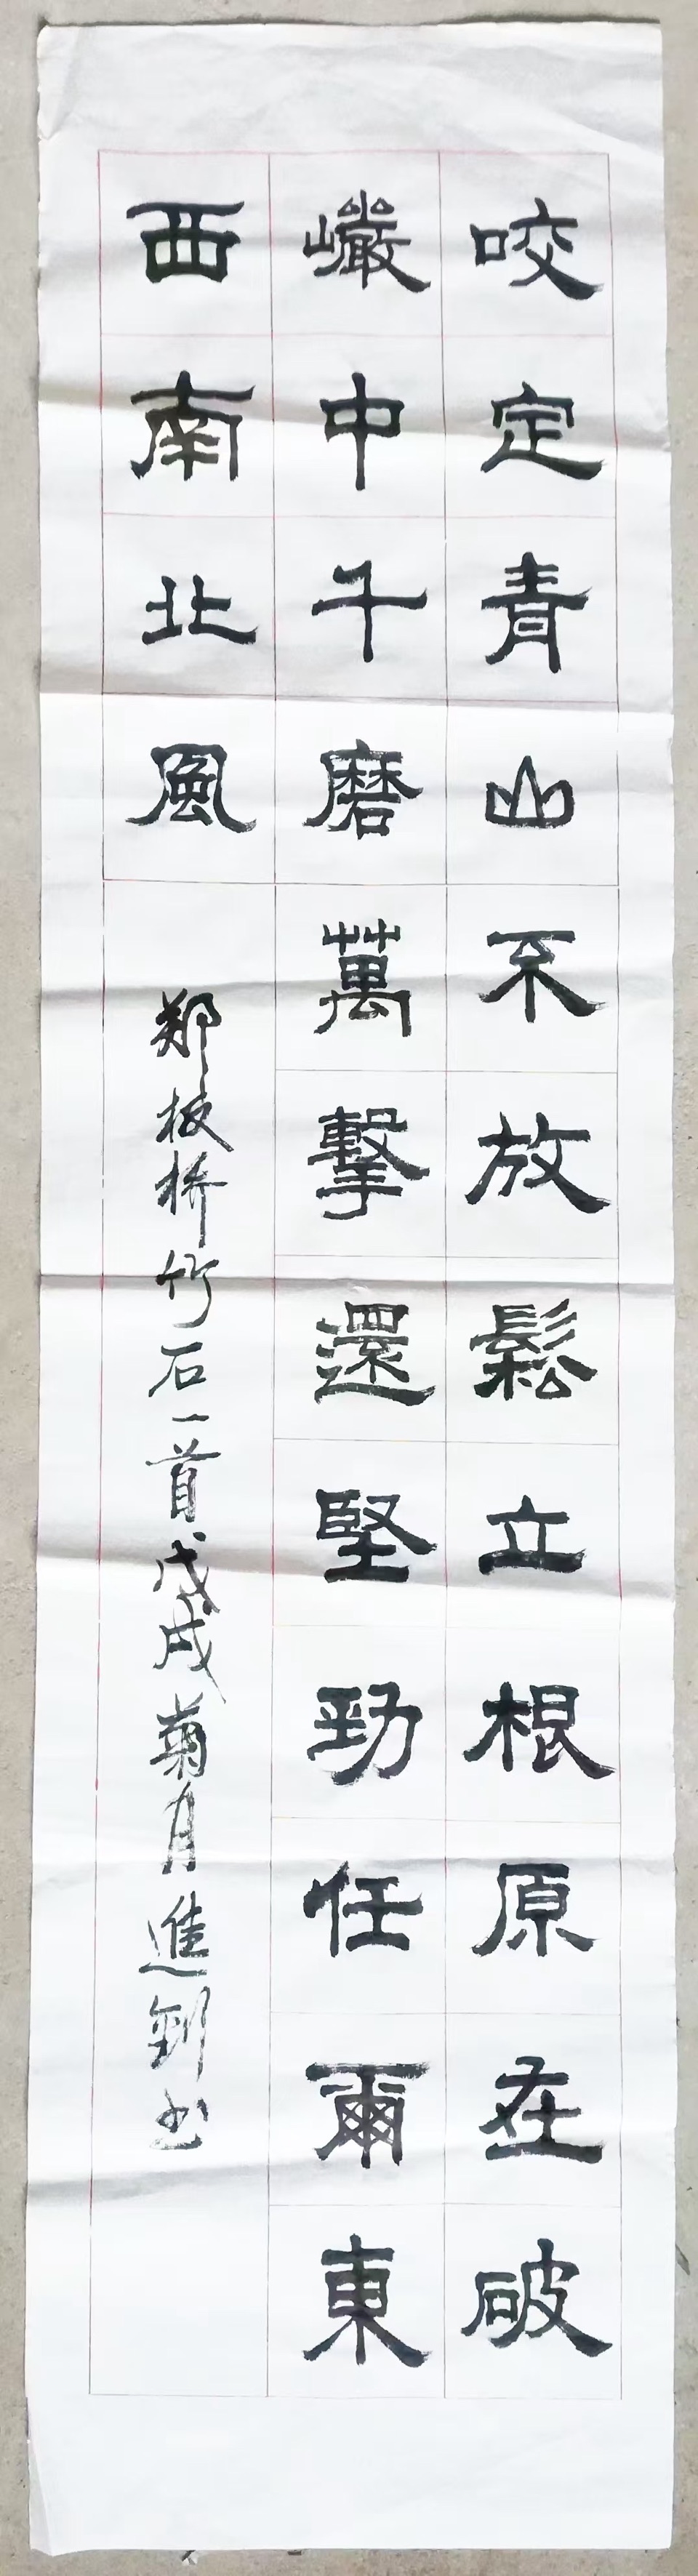 咬定青山不放鬆立根原在破
巖中千磨萬擊還堅勁任爾東
西南北風
郑板桥竹石一首戊戌菊月進釗书